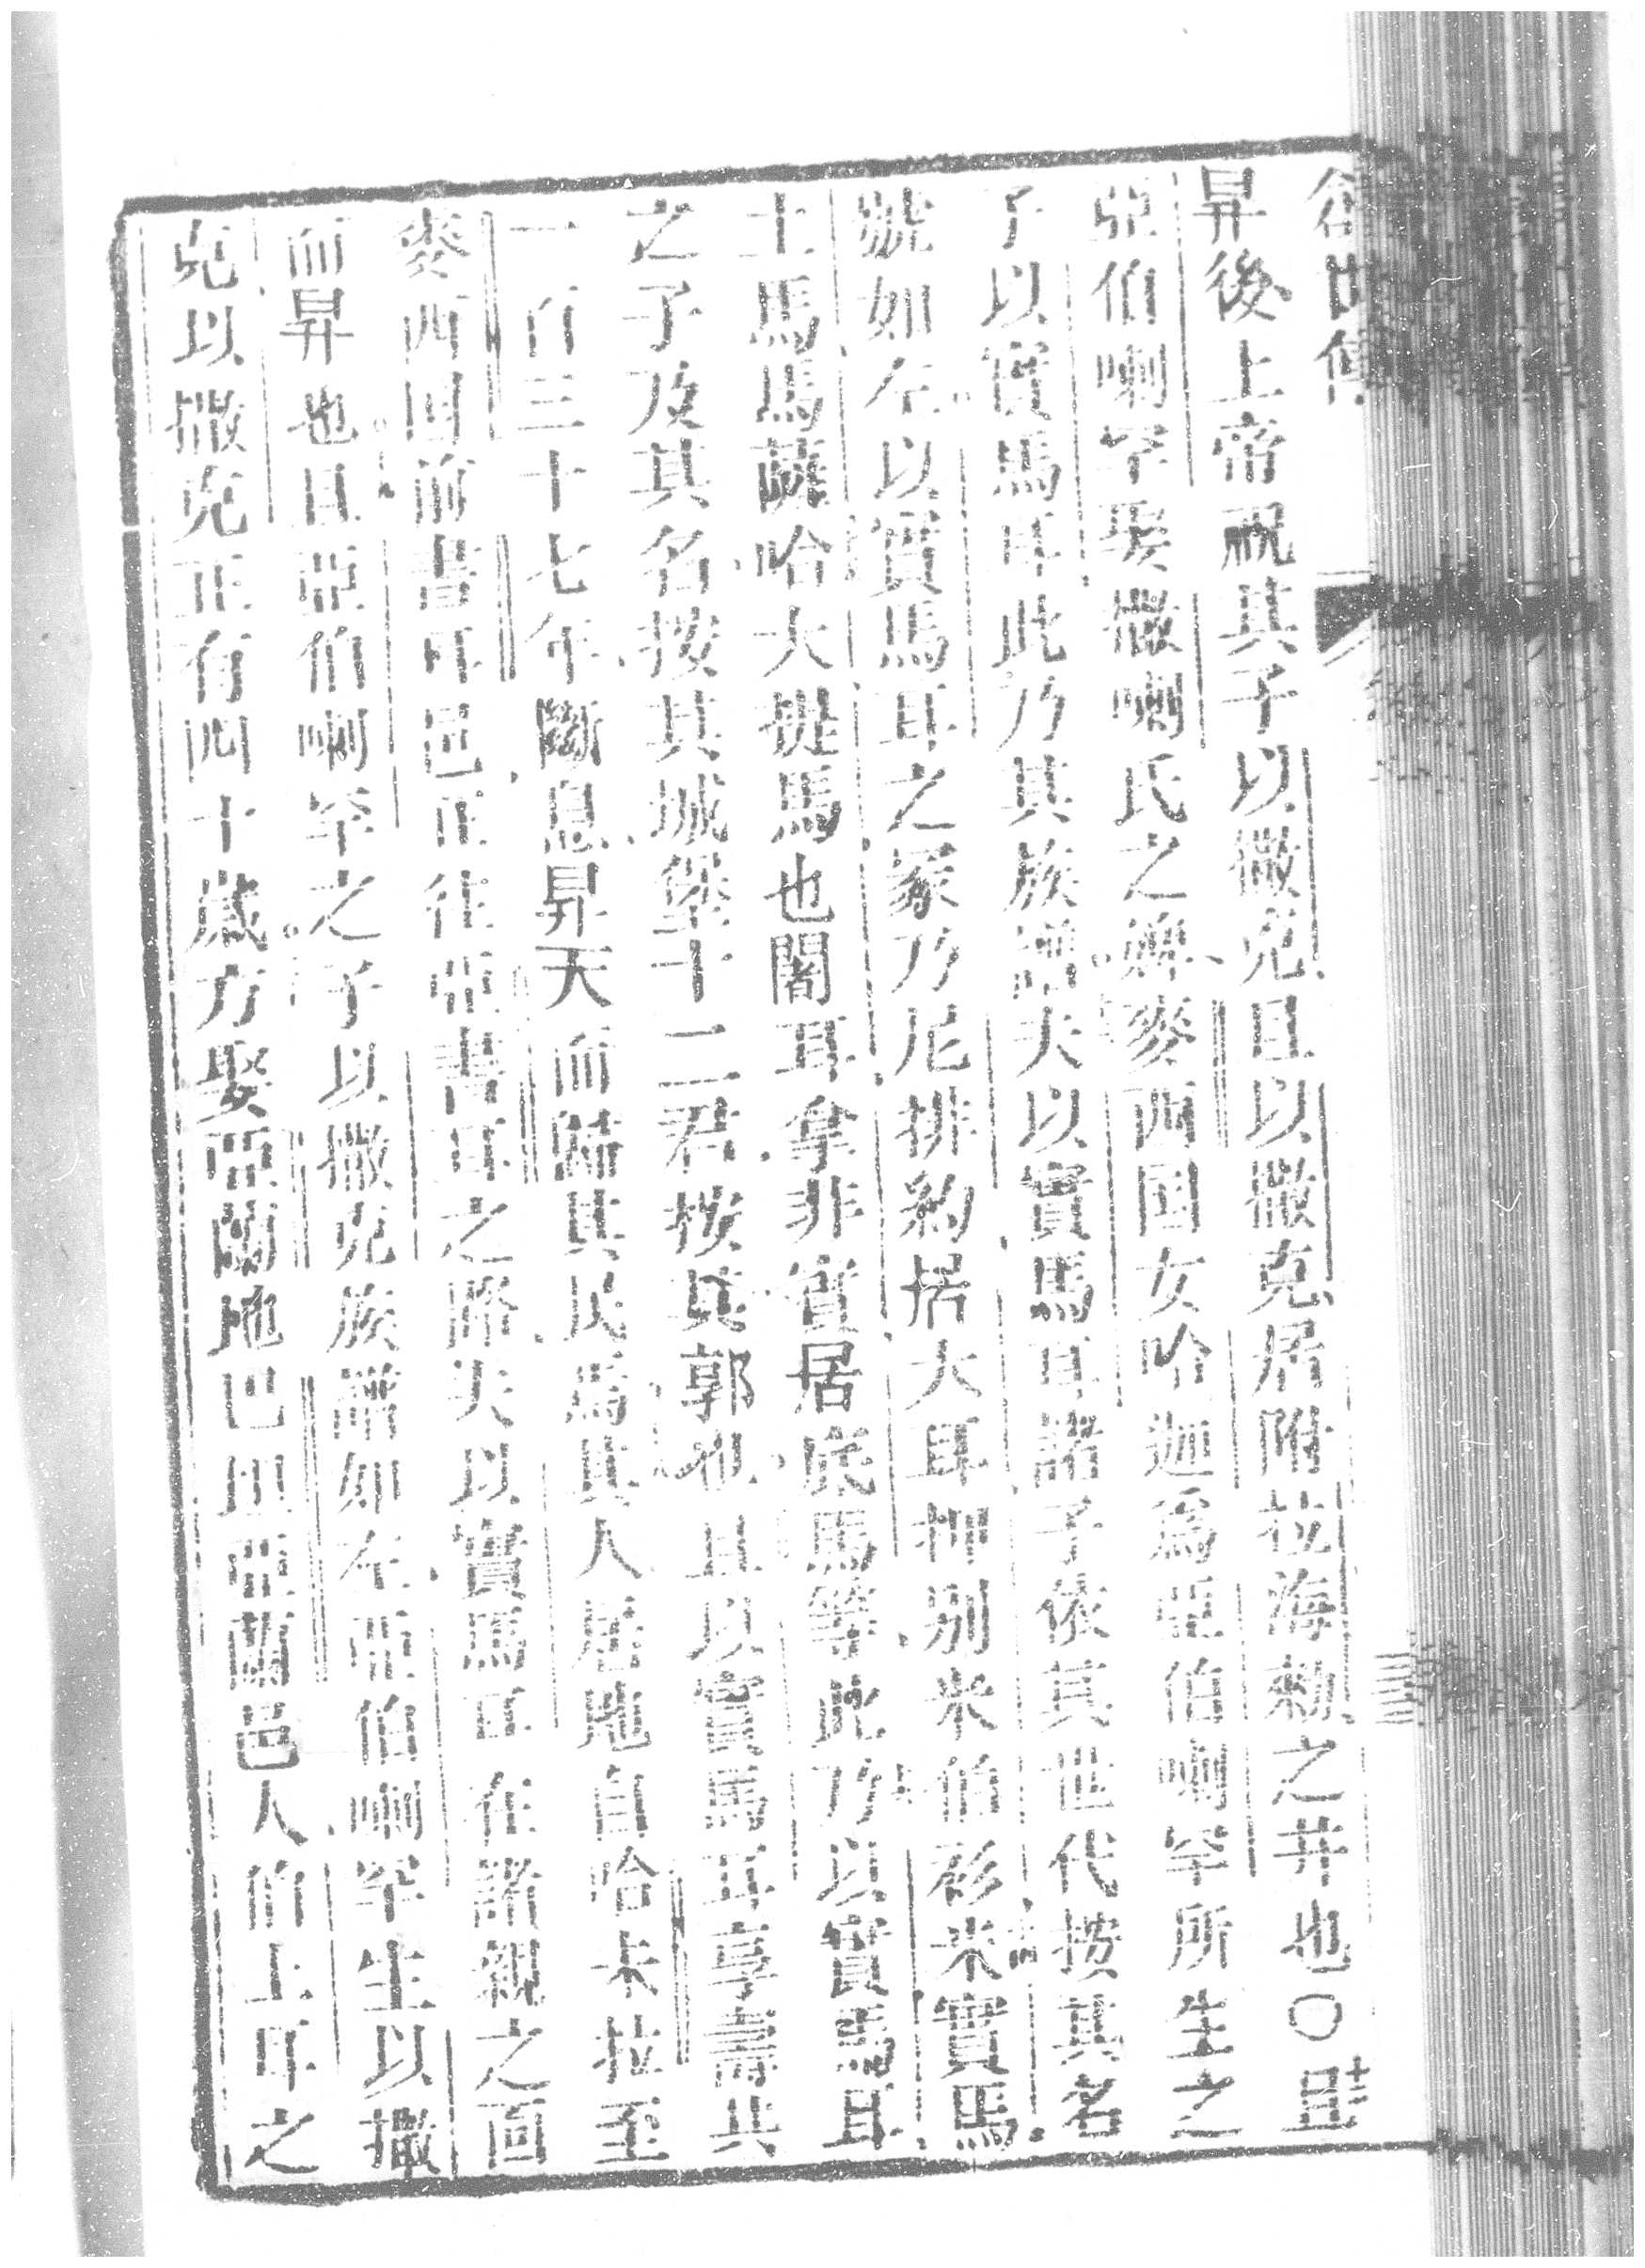 昇後上帝祝其子以撒克且以撒克居附拉海萊之井也○且
亞伯喇罕娶撒喇氏之婢麥西国女哈迦為亞伯喇罕所生之
子以實馬耳此乃其族譜夫以實馬耳諸子依其世代按其名
號如左以實馬耳之冢乃尼排約居大耳押別米伯衫米實馬
土馬馬薩哈大提馬也閣耳拿非實居底馬等此乃以實馬耳
之子及其名按其城堡十二君按其郭也且以實馬耳享壽共
一百三十七年斷息昇天而歸其民焉其人居地自哈未拉至
麥西囯前書耳巴正往亞書耳之路夫以實馬耳在諸親之面
而昇也且亞伯喇罕之子以撒克族譜如左亞伯喇罕生以撒
克以撒克正有四十歲方娶亞蘭地巴坦亞蘭邑人伯土耳之